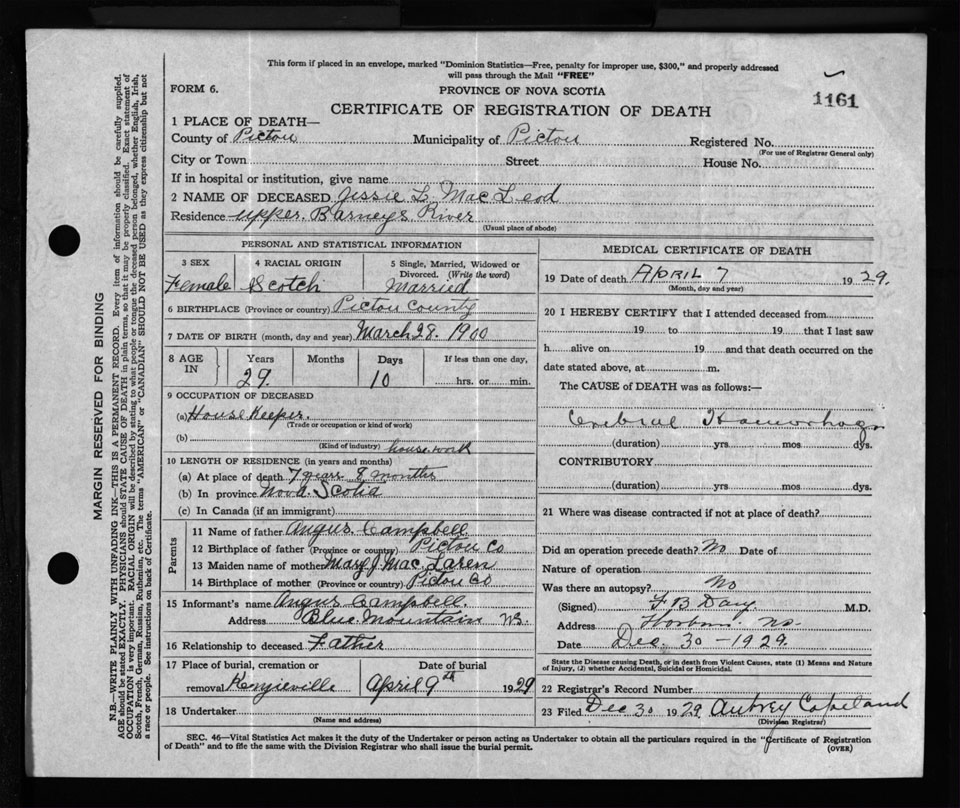 This form if placed in an envelope, marked "Dominion Statistics—Free, penalty for improper use, $300," and properly addressed
will pass through the Mail "FREE"
FORM 6.
PROVINCE OF NOVA SCOTIA
1161
CERTIFICATE OF REGISTRATION OF DEATH
1 PLACE OF DEATH—
County of Pictou Municipality of Pictou Registered No.
(For use of Registrar General only)
City or Town Street House No.
If in hospital or institution, give name
2 NAME OF DECEASED Jessie L Mac Leod
Residence upper. Barneys River
(Usual place of abode)
PERSONAL AND STATISTICAL INFORMATION
3 SEX 4 RACIAL ORIGIN 5 Single, Married, Widowed or
Divorced. (Write the word)
Female Scotch Married
6 BIRTHPLACE (Province or country) Pictou County
7 DATE OF BIRTH (month, day and year) March 28. 1900
8 AGE IN Years Months Days If less than one day,
29. 10 hrs. or min.
9 OCCUPATION OF DECEASED
(a) House Keeper.
(Trade or occupation or kind of work)
(b)
(Kind of industry) housework
10 LENGTH OF RESIDENCE (in years and months)
(a) At place of death 7 years 8 months
(b) In province Nova. Scotia
(c) In Canada (if an immigrant)
Parents
11 Name of father Angus Campbell
12 Birthplace of father (Province or country) Pictou Co
13 Maiden name of mother Mary J. Mac Laren
14 Birthplace of mother (Province or country) Pictou Co
15 Informant's name Angus Campbell.
Address Blue Mountain NS.
16 Relationship to deceased Father
17 Place of burial, cremation or Date of burial
removal Kenzieville April 9th 1929
18 Undertaker
(Name and address)
MEDICAL CERTIFICATE OF DEATH
19 Date of death April 7 1929.
(Month, day and year)
20 I HEREBY CERTIFY that I attended deceased from
19 to 19 that I last saw
h alive on 19 and that death occurred on the
date stated above, at m.
The CAUSE of DEATH was as follows:—
Cerebral Haemorhage
(duration) yrs mos dys.
CONTRIBUTORY
(duration) yrs mos dys.
21 Where was disease contracted if not at place of death?
Did an operation precede death? No Date of
Nature of operation
Was there an autopsy? No
(Signed) F B Day M.D.
Address NS.
Date Dec 30 - 1929.
State the Disease causing Death, or in death from Violent Causes, state (1) Means and Nature
of Injury, (2) whether Accidental, Suicidal or Homicidal.
22 Registrar's Record Number
23 Filed Dec 30 1929 Aubrey Copeland
(Division Registrar)
SEC. 46—Vital Statistics Act makes it the duty of the Undertaker or person acting as Undertaker to obtain all the particulars required in the "Certificate of Registration
of Death" and to file the same with the Division Registrar who shall issue the burial permit.
(OVER)
MARGIN RESERVED FOR BINDING
N.B.—WRITE PLAINLY WITH UNFADING INK—THIS IS A PERMANENT RECORD. Every item of information should be carefully supplied.
AGE should be stated EXACTLY. PHYSICIANS should STATE CAUSE OF DEATH in plain terms, so that it may be properly classified. Exact statement of
OCCUPATION is very important. RACIAL ORIGIN will be described by stating to what people or tongue the deceased person belonged, whether English, Irish,
Scotch, French, German, Russian, Ruthenian, etc. The terms "AMERICAN" or "CANADIAN" SHOULD NOT BE USED as they express citizenship but not
a race or people. See instructions on back of Certificate.